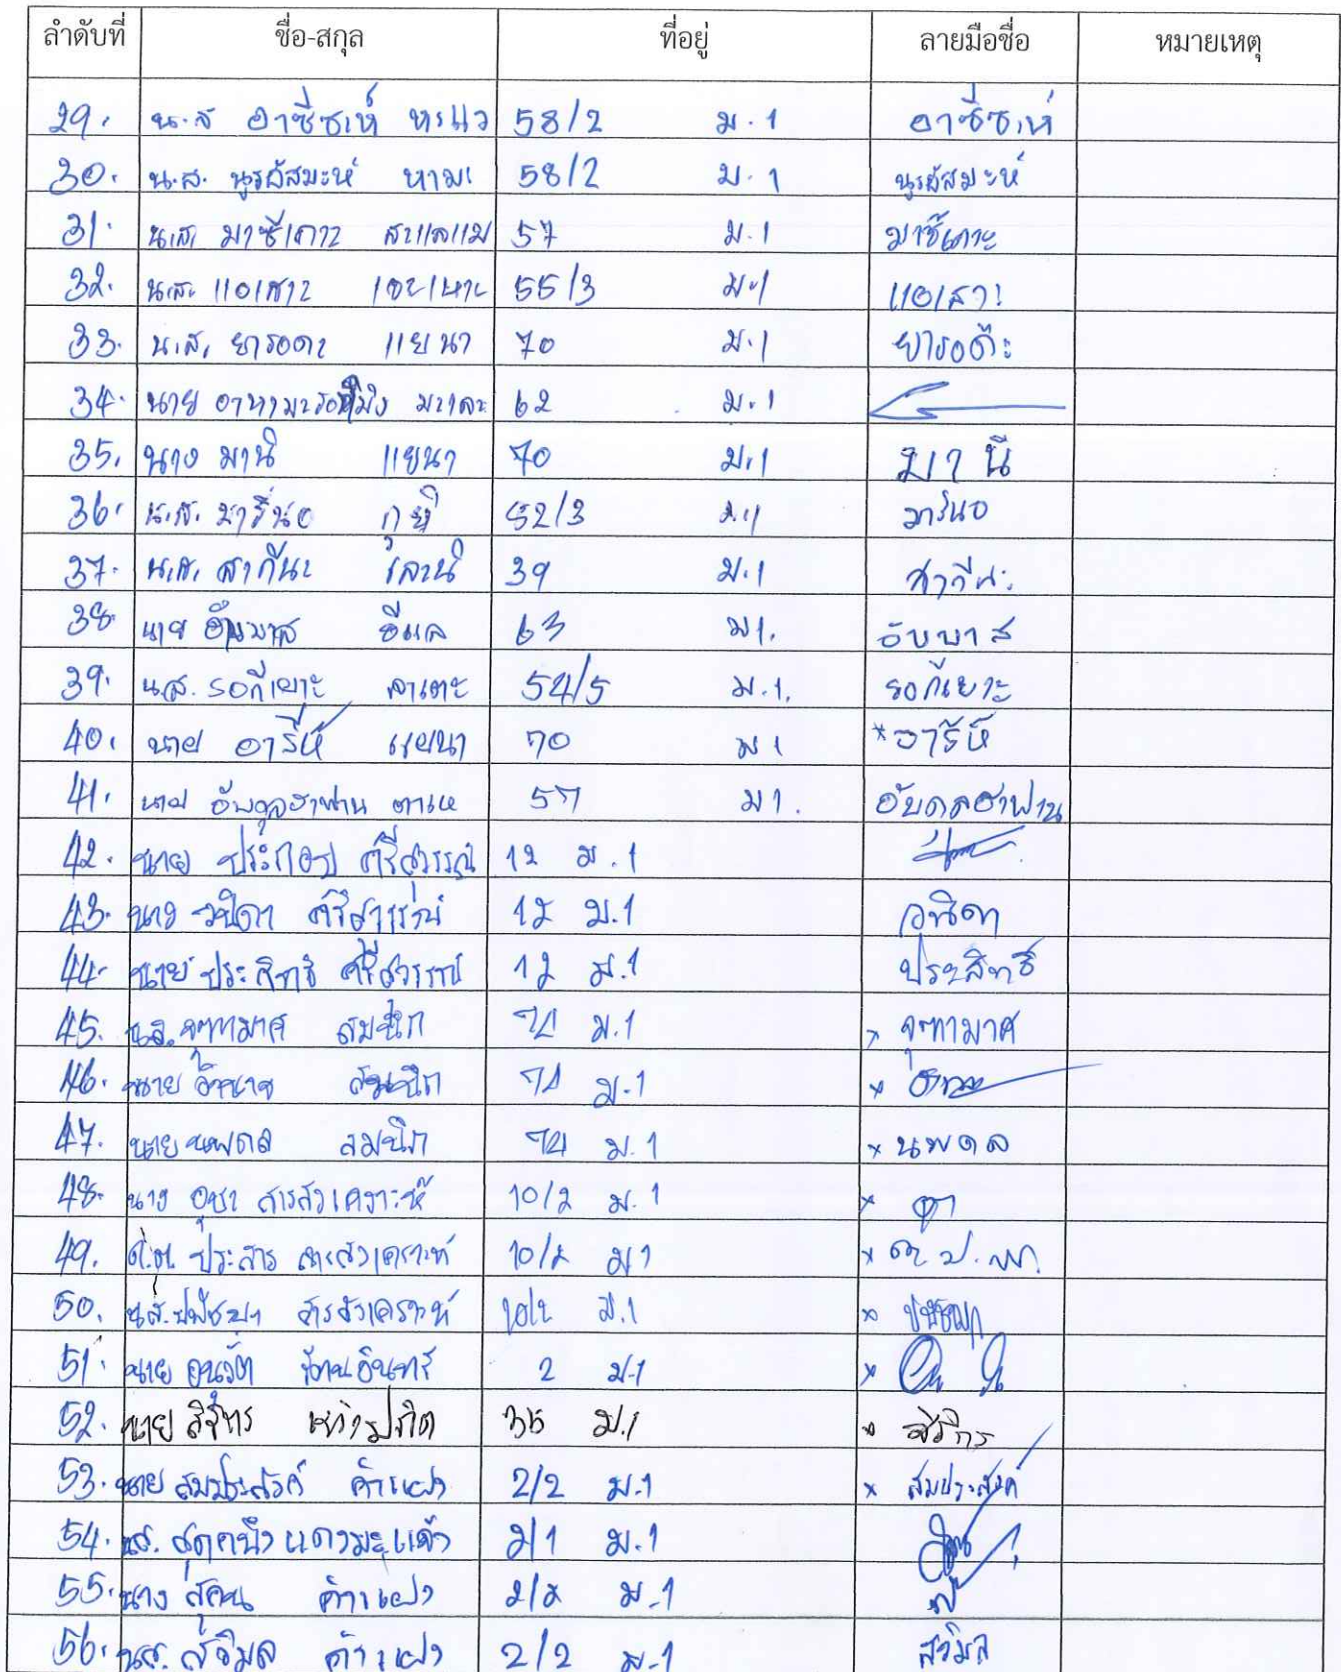 ลำดับที่ ชื่อ-สกุล ที่อยู่ ลายมือชื่อ หมายเหตุ
29. น.ส อาซีซะห์ 58/2 ม.1 อาซีซะห์
30. น.ส. นูรอัสมะห์ หามะ 58/2 ม.1 นูรอัสมะห์
31. น.ส. มาซีเตาะ สะแลแม 57 ม.1 มาซีเตาะ
32. น.ส. แอเสาะ 55/3 ม.1 แอเสาะ
33. น.ส. ยารอดะ แยนา 70 ม.1 ยารอดะ
34. นาย 62 ม.1
35. นาง มานี แยนา 70 ม.1 มานี
36. น.ส. มารีนอ กูยิ 52/3 ม.1 มารีนอ
37. น.ส. สากีนะ 39 ม.1 สากีนะ
38. นาย อับบาส อีแล 63 ม1. อับบาส
39. น.ส. รอกีเยาะ ลาเตะ 54/5 ม.1. รอกีเยาะ
40. นาย อารีห์ แยนา 70 ม1 *อารีห์
41. นาย อับดุลฮาฟาน ตาเห 57 ม1. อับดลฮาฟาน
42. นาย ประกอบ ศรีสุวรรณ์ 12 ม.1
43. นาง วนิดา ศรีสุวรรณ์ 12 ม.1 วนิดา
44. นาย ประสิทธิ์ ศรีสุวรรณ์ 12 ม.1 ประสิทธิ์
45. น.ส. จุฑามาศ สมนึก 74 ม.1 จุฑามาศ
46. นาย อำนาจ สมนึก 74 ม.1 x
47. นาย นพดล สมนึก 74 ม.1 x นพดล
48. นาง อุษา สารสงเคราะห์ 10/2 ม.1 x
49. ด.ต. ประสาร สารสงเคราะห์ 10/2 ม1 x
50. น.ส. สารสงเคราะห์ 10/2 ม.1 x
51. นาย อนุวัต รัตนอินทร์ 2 ม.1 x
52. นาย 35 ม.1
53. นาย สมประสงค์ คำแฝง 2/2 ม.1 x สมประสงค์
54. นส. สุดคนึง แดงมะแจ้ง 2/1 ม.1
55. นาง สุคน คำแฝง 2/2 ม.1
56. นส. สุวิมล คำแฝง 2/2 ม.1 สุวิมล